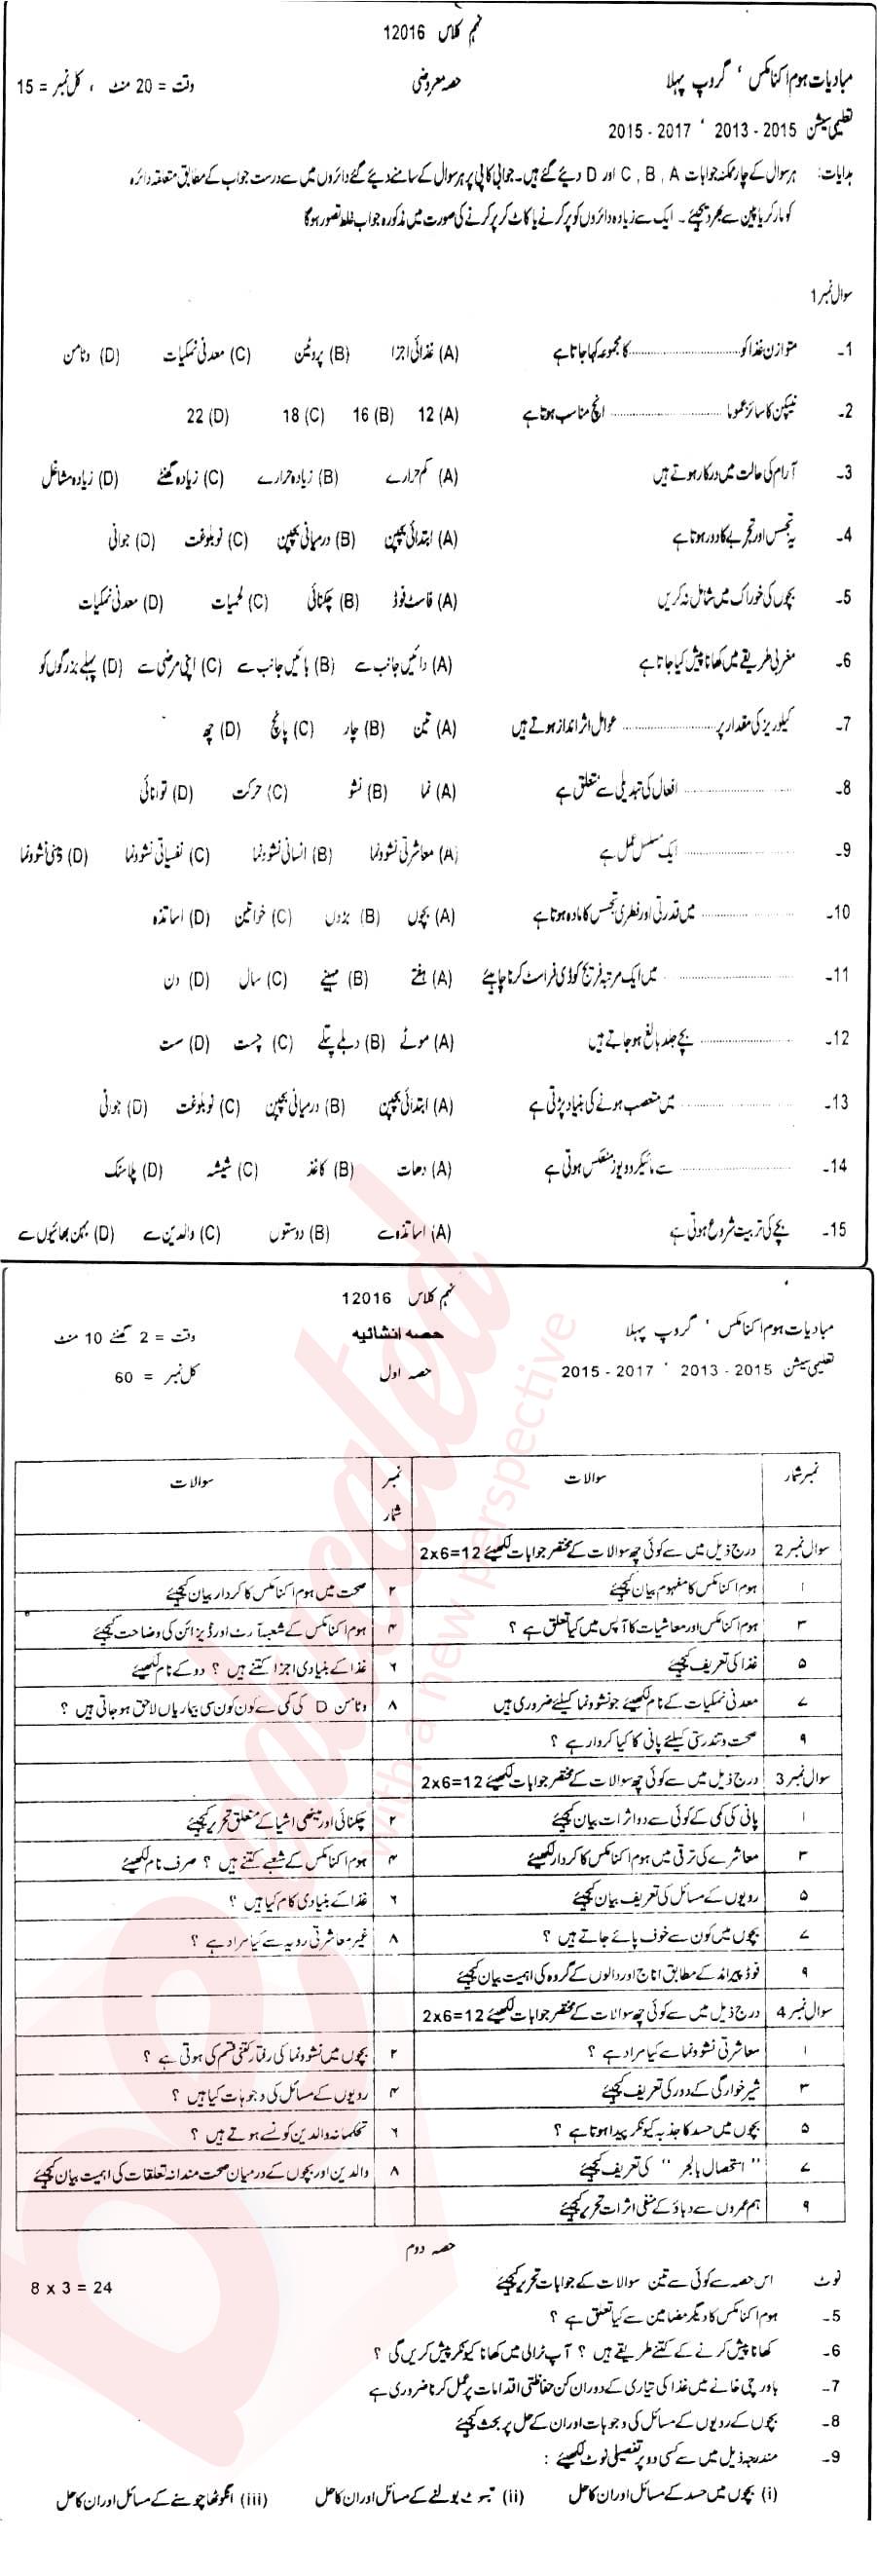 نہم کلاس 12016
مبادیات ہوم اکنامکس ‘ گروپ پہلا حصہ معروضی وقت = 20 منٹ ، کل نمبر = 15
تعلیمی سیشن 2015 - 2013 ‘ 2017 - 2015
ہدایات: ہر سوال کے چار ممکنہ جوابات A , B , C اور D دیئے گئے ہیں۔ جوابی کاپی پر ہر سوال کے سامنے دیئے گئے دائروں میں سے درست جواب کے مطابق متعلقہ دائرہ
کو مارکر یا پین سے بھر دیجئیے۔ ایک سے زیادہ دائروں کو پر کرنے یا کاٹ کر پر کرنے کی صورت میں مذکورہ جواب غلط تصور ہوگا
سوال نمبر 1
1۔ متوازن غذا کو .................... کا مجموعہ کہا جاتا ہے (A) غذائی اجزا (B) پروٹین (C) معدنی نمکیات (D) وٹامن
2۔ نیپکن کا سائز عموما .................... انچ مناسب ہوتا ہے (A) 12 (B) 16 (C) 18 (D) 22
3۔ آرام کی حالت میں درکار ہوتے ہیں (A) کم حرارے (B) زیادہ حرارے (C) زیادہ گھنٹے (D) زیادہ مشاغل
4۔ یہ تجسس اور تجربے کا دور ہوتا ہے (A) ابتدائی بچپن (B) درمیانی بچپن (C) نوبلوغت (D) جوانی
5۔ بچوں کی خوراک میں شامل نہ کریں (A) فاسٹ فوڈ (B) چکنائی (C) لحمیات (D) معدنی نمکیات
6۔ مغربی طریقے میں کھانا پیش کیا جاتا ہے (A) دائیں جانب سے (B) بائیں جانب سے (C) اپنی مرضی سے (D) پہلے بزرگوں کو
7۔ کیلوریز کی مقدار پر .................... عوامل اثر انداز ہوتے ہیں (A) تین (B) چار (C) پانچ (D) چھ
8۔ .................... افعال کی تبدیلی سے تعلق ہے (A) نما (B) نشو (C) حرکت (D) توانائی
9۔ .................... ایک مسلسل عمل ہے (A) معاشرتی نشوونما (B) انسانی نشوونما (C) نفسیاتی نشوونما (D) ذہنی نشوونما
10۔ .................... میں قدرتی اور فطری تجسس کا مادہ ہوتا ہے (A) بچوں (B) بڑوں (C) خواتین (D) اساتذہ
11۔ .................... میں ایک مرتبہ فریج کو ڈی فراسٹ کرنا چاہیئے (A) ہفتے (B) مہینے (C) سال (D) دن
12۔ .................... بچے جلد بالغ ہو جاتے ہیں (A) موٹے (B) دبلے پتلے (C) چست (D) سست
13۔ .................... میں متعصب ہونے کی بنیاد پڑتی ہے (A) ابتدائی بچپن (B) درمیانی بچپن (C) نوبلوغت (D) جوانی
14۔ .................... سے مائیکرو ویوز منعکس ہوتی ہے (A) دھات (B) کاغذ (C) شیشہ (D) پلاسٹک
15۔ بچے کی تربیت شروع ہوتی ہے (A) اساتذہ سے (B) دوستوں (C) والدین سے (D) بہن بھائیوں سے
نہم کلاس 12016
مبادیات ہوم اکنامکس ‘ گروپ پہلا حصہ انشائیہ وقت = 2 گھنٹے 10 منٹ
تعلیمی سیشن 2015 - 2013 ‘ 2017 - 2015 حصہ اول کل نمبر = 60
نمبر شمار سوالات نمبر شمار سوالات
سوال نمبر 2 درج ذیل میں سے کوئی چھ سوالات کے مختصر جوابات لکھیئے 2x6=12
۱ ہوم اکنامکس کا مفہوم بیان کیجئیے ۲ صحت میں ہوم اکنامکس کا کردار بیان کیجئیے
۳ ہوم اکنامکس اور معاشیات کا آپس میں کیا تعلق ہے ؟ ۴ ہوم اکنامکس کے شعبہ آرٹ اور ڈیزائن کی وضاحت کیجئیے
۵ غذا کی تعریف کیجئیے ۶ غذا کے بنیادی اجزا کتنے ہیں ؟ دو کے نام لکھیئے
۷ معدنی نمکیات کے نام لکھیئے جو نشوونما کیلئے ضروری ہیں ۸ وٹامن D کی کمی سے کون کون سی بیماریاں لاحق ہو جاتی ہیں ؟
۹ صحت و تندرستی کیلئے پانی کا کیا کردار ہے ؟
سوال نمبر 3 درج ذیل میں سے کوئی چھ سوالات کے مختصر جوابات لکھیئے 2x6=12
۱ پانی کی کمی کے کوئی سے دو اثرات بیان کیجئیے ۲ چکنائی اور میٹھی اشیا کے متعلق تحریر کیجئیے
۳ معاشرے کی ترقی میں ہوم اکنامکس کا کردار لکھیئے ۴ ہوم اکنامکس کے شعبے کتنے ہیں ؟ صرف نام لکھیئے
۵ رویوں کے مسائل کی تعریف بیان کیجئیے ۶ غذا کے بنیادی کام کیا ہیں ؟
۷ بچوں میں کون سے خوف پائے جاتے ہیں ؟ ۸ غیر معاشرتی رویہ سے کیا مراد ہے ؟
۹ فوڈ پیرامڈ کے مطابق اناج اور دالوں کے گروہ کی اہمیت بیان کیجئیے
سوال نمبر 4 درج ذیل میں سے کوئی چھ سوالات کے مختصر جوابات لکھیئے 2x6=12
۱ معاشرتی نشوونما سے کیا مراد ہے ؟ ۲ بچوں میں نشوونما کی رفتار کتنی قسم کی ہوتی ہے ؟
۳ شیر خوارگی کے دور کی تعریف کیجئیے ۴ رویوں کے مسائل کی وجوہات کیا ہیں ؟
۵ بچوں میں حسد کا جذبہ کیونکر پیدا ہوتا ہے ؟ ۶ تحکمانہ والدین کونسے ہوتے ہیں ؟
۷ " استحصال بالجبر " کی تعریف کیجئیے ۸ والدین اور بچوں کے درمیان صحت مندانہ تعلقات کی اہمیت بیان کیجئیے
۹ ہم عمروں سے دباؤ کے منفی اثرات تحریر کیجئیے
حصہ دوم
نوٹ اس حصہ سے کوئی سے تین سوالات کے جوابات تحریر کیجئیے 8 x 3 = 24
5۔ ہوم اکنامکس کا دیگر مضامین سے کیا تعلق ہے ؟
6۔ کھانا پیش کرنے کے کتنے طریقے ہیں ؟ آپ ٹرالی میں کھانا کیونکر پیش کریں گی ؟
7۔ باورچی خانے میں غذا کی تیاری کے دوران کن حفاظتی اقدامات پر عمل کرنا ضروری ہے
8۔ بچوں کے رویوں کے مسائل کی وجوہات اور ان کے حل پر بحث کیجئیے
9۔ مندرجہ ذیل میں سے کسی دو پر تفصیلی نوٹ لکھیئے :
(i) بچوں میں حسد کے مسائل اور ان کا حل (ii) جھوٹ بولنے کے مسائل اور ان کا حل (iii) انگوٹھا چوسنے کے مسائل اور ان کا حل
beeducated
with a new perspective